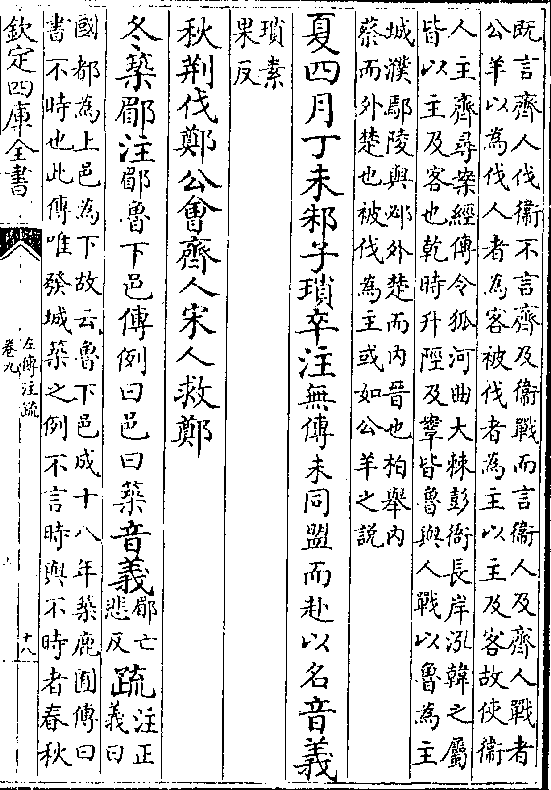 既言齊人伐衞不言齊及衞戰而言衞人及齊人戰者
公羊以為伐人者為客被伐者為主以主及客故使衞
人主齊尋案經傳令狐河曲大棘彭衙長岸泓韓之屬
皆以主及客也乾時升陘及鞌皆魯與人戰以魯為主
城濮鄢陵與邲外楚而内晉也柏舉内
蔡而外楚也被伐為主或如公羊之説
夏四月丁未邾子瑣卒注無傳未同盟而赴以名音義
瑣素
果反
秋荆伐鄭公會齊人宋人救鄭
冬築郿注郿魯下邑傳例曰邑曰築音義郿亡悲反疏注正義曰
國都為上邑為下故云魯下邑成十八年築鹿囿傳曰
書不時也此傳唯發城築之例不言時與不時者春秋
欽定四庫全書
左傳注疏
卷九
十八